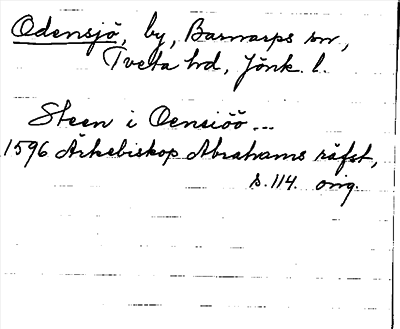 Odensjö, by, Barnarps sn,
Tveta hd, Jönk. l.
Steen i Oensiöö...
1596 Ärkebiskop Abrahams räfst,
s. 114. orig.